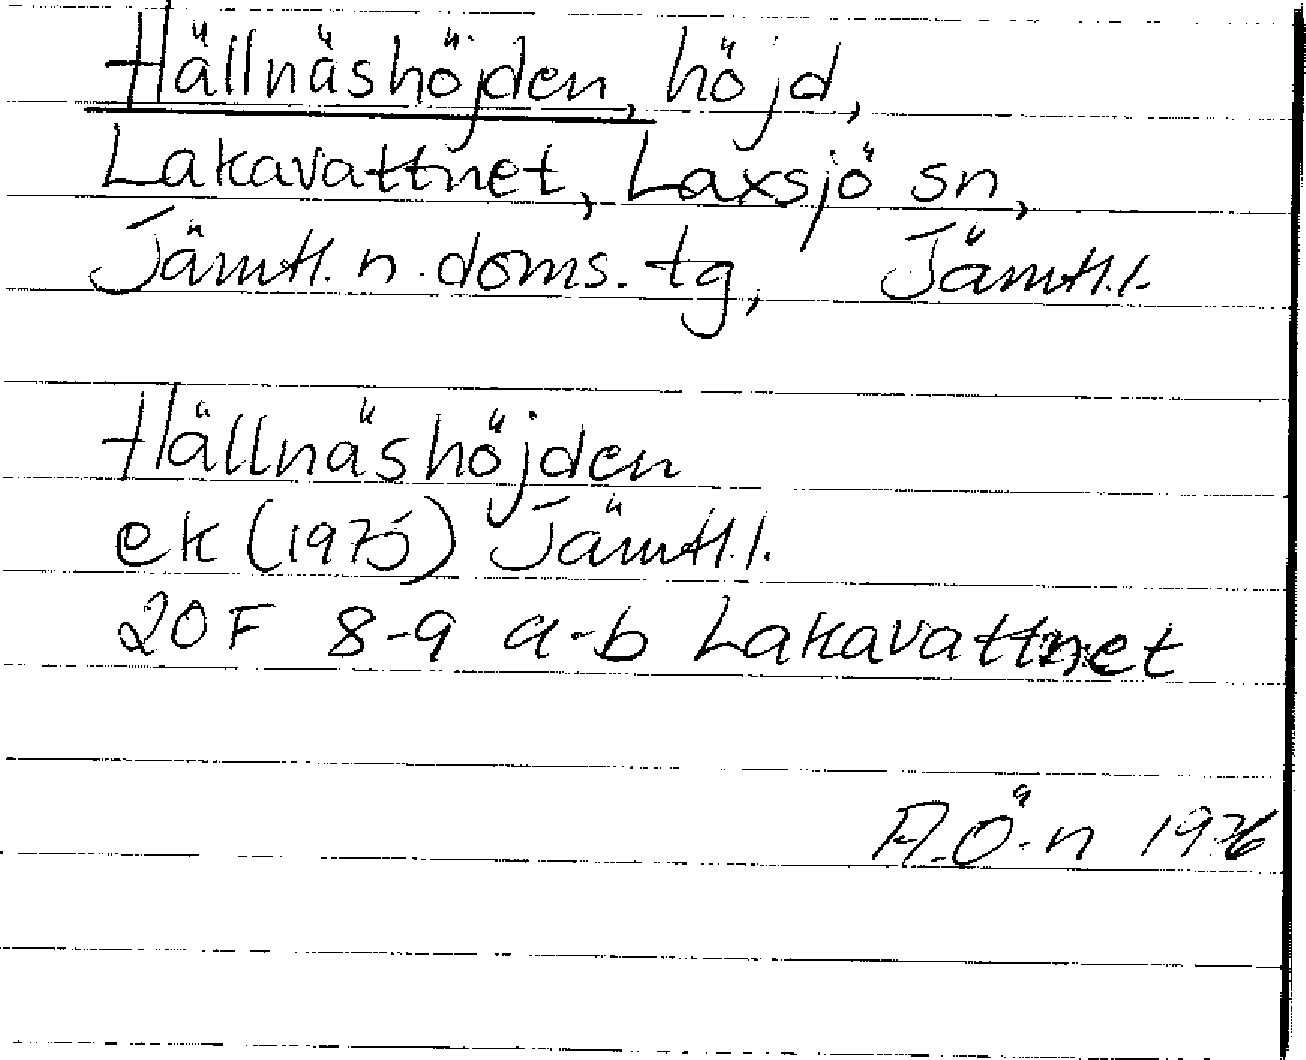 Hällnäshöjden, höjd,
Lakavattnet, Laxsjö sn,
Jämtl. n. doms. tg, Jämtl.l.
Hällnäshöjden
ek (1975) Jämtl.l.
20F 8-9 a-b Lakavattnet
A.Ö.n 1976